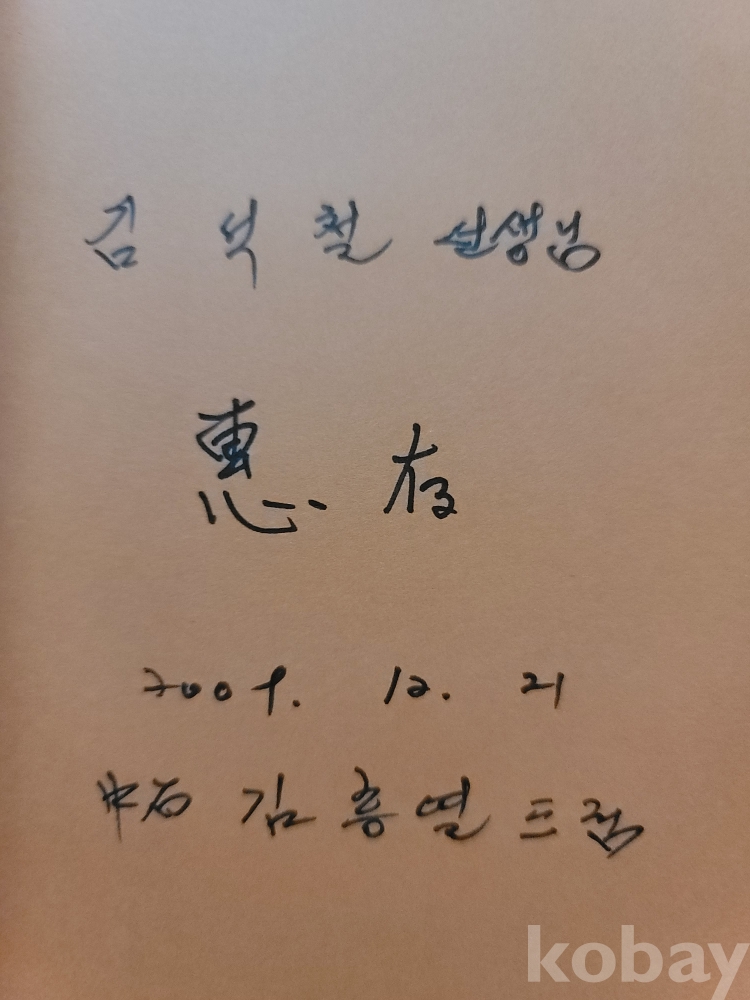 김석철 선생님
惠存
2009. 12. 21
中石 김흥열 드림
kobay